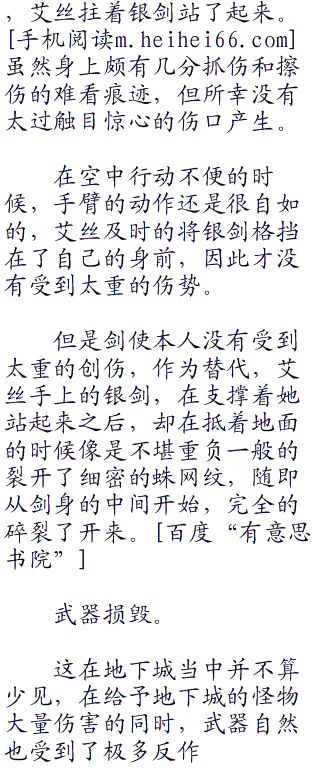 ，艾丝拄着银剑站了起来。
[手机阅读m.heihei66.com]
虽然身上颇有几分抓伤和擦
伤的难看痕迹，但所幸没有
太过触目惊心的伤口产生。
在空中行动不便的时
候，手臂的动作还是很自如
的，艾丝及时的将银剑格挡
在了自己的身前，因此才没
有受到太重的伤势。
但是剑使本人没有受到
太重的创伤，作为替代，艾
丝手上的银剑，在支撑着她
站起来之后，却在抵着地面
的时候像是不堪重负一般的
裂开了细密的蛛网纹，随即
从剑身的中间开始，完全的
碎裂了开来。[百度“有意思
书院”]
武器损毁。
这在地下城当中并不算
少见，在给予地下城的怪物
大量伤害的同时，武器自然
也受到了极多反作